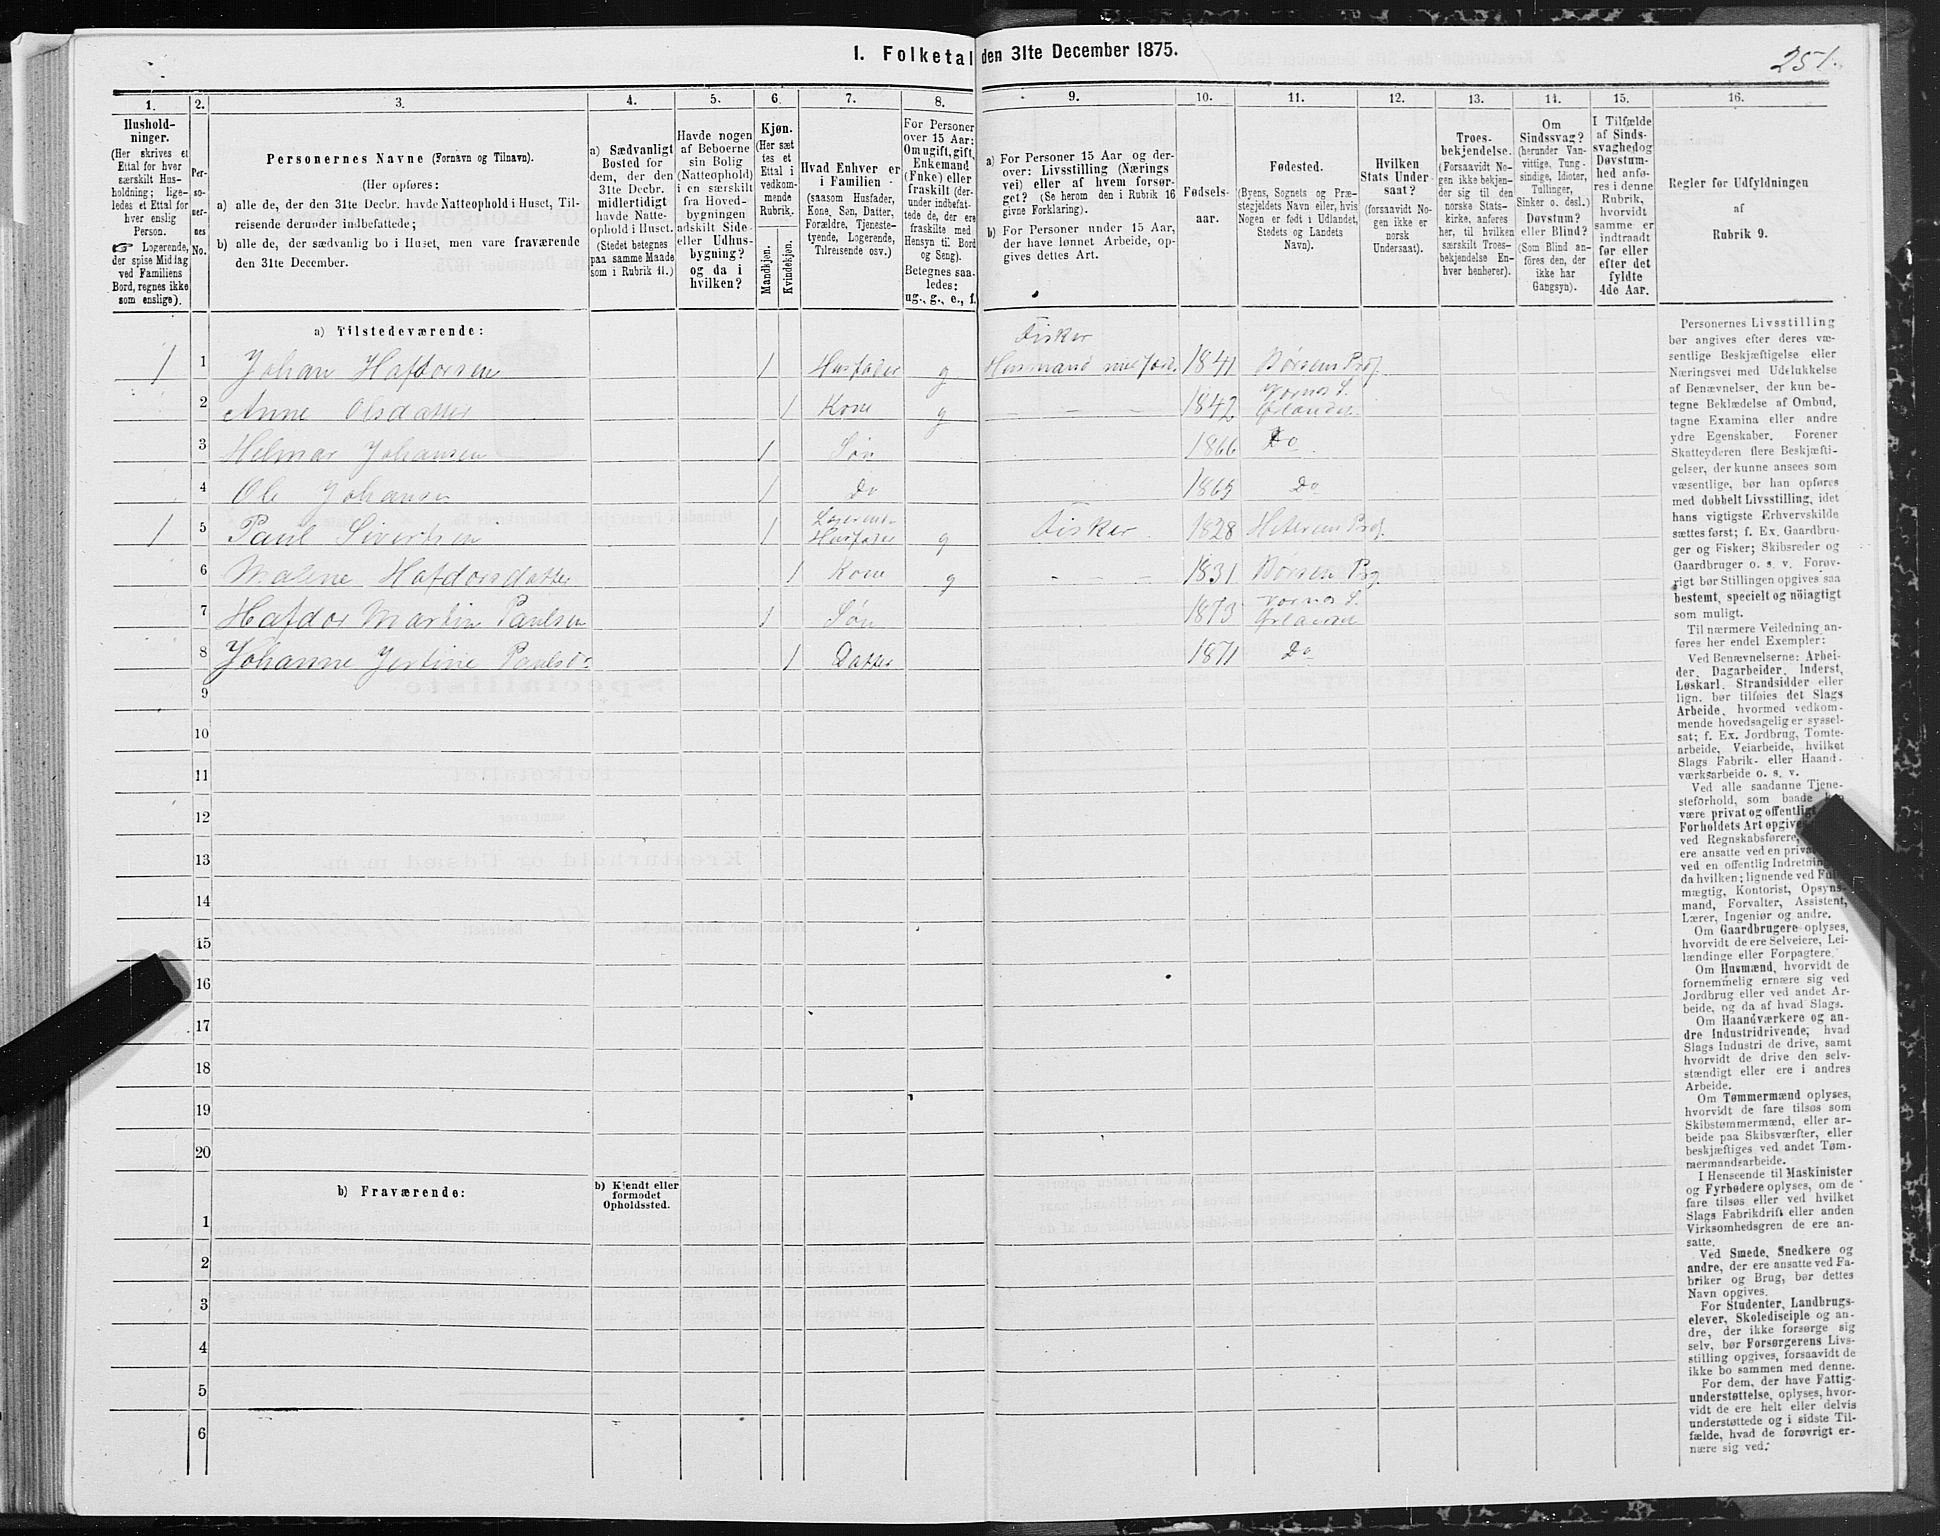 1. Folketal den 31te December 1875.
251.
1. 2. 3. 4. 5. 6. 7. 8. 9. 10. 11. 12. 13. 14. 15. 16.
Hushold-
ninger.
(Her skrives et
Ettal for hver
særskilt Hus-
holdning; lige-
ledes et Ettal for
hver enslig
Person.
☞ Logerende,
der spise Middag
ved Familiens
Bord, regnes ikke
som enslige).
Per-
so-
ner-
nes
No.
Personernes Navne (Fornavn og Tilnavn).
(Her opføres:
a) alle de, der den 31te Decbr. havde Natteophold i Huset, Til-
reisende derunder indbefattede;
b) alle de, der sædvanlig bo i Huset, men vare fraværende
den 31te December.
a) Sædvanligt
Bosted for
dem, der den
31te Decbr.
midlertidigt
havde Natte-
ophold i Huset.
(Stedet betegnes
paa samme Maade
som i Rubrik 11.)
Havde nogen
af Beboerne
sin Bolig
(Natteophold)
i en særskilt
fra Hoved-
bygningen
adskilt Side-
eller Udhus-
bygning?
og da i
hvilken?
Kjøn.
(Her sæt
tes et
Ettal i
vedkom-
mende
Rubrik.)
Mandkjøn.
Kvindekjøn.
Hvad Enhver er
i Familien
(saasom Husfader,
Kone, Søn, Datter,
Forældre, Tjeneste-
tyende, Logerende,
Tilreisende osv.)
For Personer
over 15 Aar:
Om ugift, gift,
Enkemand
(Enke) eller
fraskilt (der-
under indbefat-
tede de, der ere
fraskilte med
Hensyn til Bord
og Seng).
Betegnes saa-
ledes:
ug., g., e., f.
a) For Personer 15 Aar og der-
over: Livsstilling (Nærings
vei) eller af hvem forsør-
get? (Se herom den i Rubrik 16
givne Forklaring).
b) For Personer under 15 Aar,
der have lønnet Arbeide, op-
gives dettes Art.
Fødsels-
aar.
Fødested.
(Byens, Sognets og Præ-
stegjeldets Navn eller, hvis
Nogen er født i Udlandet,
Stedets og Landets
Navn).
Hvilken
Stats Under
saat?
(forsaavidt No-
gen ikke er
norsk
Undersaat).
Troes-
bekjendelse.
(Forsaavidt No-
gen ikke bekjen-
der sig til den
norske Stats-
kirke, anføres
her, til hvilken
særskilt Troes-
bekjendelse En-
hver henhører).
Om
Sindssvag?
(herunder Van-
vittige, Tung-
sindige, Idioter,
Tullinger,
Sinker o. desl.)
Døvstum?
eller Blind?
(Som Blind an-
føres den, der
ikke har
Gangsyn).
I Tilfælde
af Sinds-
svaghed og
Døvstum-
hed anfø-
res i denne
Rubrik,
hvorvidt
samme er
indtraadt
før eller
efter det
fyldte
4de Aar.
Regler for Udfyldningen
af
Rubrik 9.
a) Tilstedeværende:
Fisker
1 1 Johan Hafdorsen 1 Husfader g Husmand med Jord. 1841 Børsen Prgj.
2 Anne Olsdatter 1 Kone g — — — 1842 Ørlandet
3 Helmar Johansen 1 Søn 1866 Do
4 Ole Johansen 1 Do 1865 Do
1 5 Paul Sivertsen 1 Logerende Husfader g Fisker 1828 Hiteren Prgj.
6 Malene Hafdorsdatter 1 Kone g — — — 1831 Børsen Prgj
7 Hafdor Martin Paulsen 1 Søn 1873 Ørlandet
8 Johanne Jertine Paulsd. 1 Datter 1871 Do
9
10
11
12
13
14
15
16
17
18
19
20
b) Fraværende:
b) Kjendt eller
formodet
Opholdssted.
1
2
3
4
5
6
Personernes Livsstilling
bør angives efter deres væ-
sentlige Beskjæftigelse eller
Næringsvei med Udelukkelse
af Benævnelser, der kun be-
tegne Beklædelse af Ombud,
tagne Examina eller andre
ydre Egenskaber. Forener
Skatteyderen flere Beskjæfti-
gelser, der kunne ansees som
væsentlige, bør han opføres
med dobbelt Livsstilling, idet
hans vigtigste Erhvervskilde
sættes først; f. Ex. Gaardbru-
ger og Fisker; Skibsreder og
Gaardbruger o. s. v. Forøv-
rigt bør Stillingen opgives saa
bestemt, specielt og nöiagtigt
som muligt.
Til nærmere Veiledning an-
føres her endel Exempler:
Ved Benævnelserne: Arbei-
der, Dagarbeider, Inderst,
Løskarl, Strandsidder eller
lign. bør tilføies det Slags
Arbeide, hvormed vedkom-
mende hovedsagelig er syssel-
sat; f. Ex. Jordbrug, Tomte-
arbeide, Veiarbeide, hvilket
Slags Fabrik- eller Haand-
værksarbeide o. s. v.
Ved alle saadanne Tjene-
steforhold, som baade kan
være privat og offentligt
Forholdets Art opgives
ved Regnskabsførere,
ere ansatte ved en privat
ved en offentlig Indretning
da hvilken; lignende ved Fuld-
mægtig, Kontorist, Opsyns-
mand, Forvalter, Assistent,
Lærer, Ingeniør og andre.
Om Gaardbrugere oplyses,
hvorvidt de ere Selveiere, Lei-
lændinge eller Forpagtere.
Om Husmænd, hvorvidt de
fornemmelig ernære sig ved
Jordbrug eller ved andet Ar-
beide, og da af hvad Slags.
Om Haandværkere og an-
dre Industridrivende, hvad
Slags Industri de drive, samt
hvorvidt de drive den selv-
stændigt eller ere i andres
Arbeide.
Om Tømmermænd oplyses,
hvorvidt de fare tilsøs som
Skibstømmermænd, eller ar-
beide paa Skibsværfter, eller
beskjæftiges ved andet Tøm-
mermandsarbeide.
I Henseende til Maskinister
og Fyrbødere oplyses, om de
fare tilsøs eller ved hvilket
Slags Fabrikdrift eller anden
Virksomhedsgren de ere an-
satte.
Ved Smede, Snedkere og
andre, der ere ansatte ved Fa-
briker og Brug, bør dettes
Navn opgives.
For Studenter, Landbrugs-
elever, Skoledisciple og an-
dre, der ikke forsørge sig
selv, bør Forsørgerens Livs-
stilling opgives, forsaavidt de
ikke bo sammen med denne.
For dem, der have Fattig-
understøttelse, oplyses, hvor-
vidt de ere helt eller delvis
understøttede og i sidste Til-
fælde, hvad de forøvrigt er-
nære sig ved.